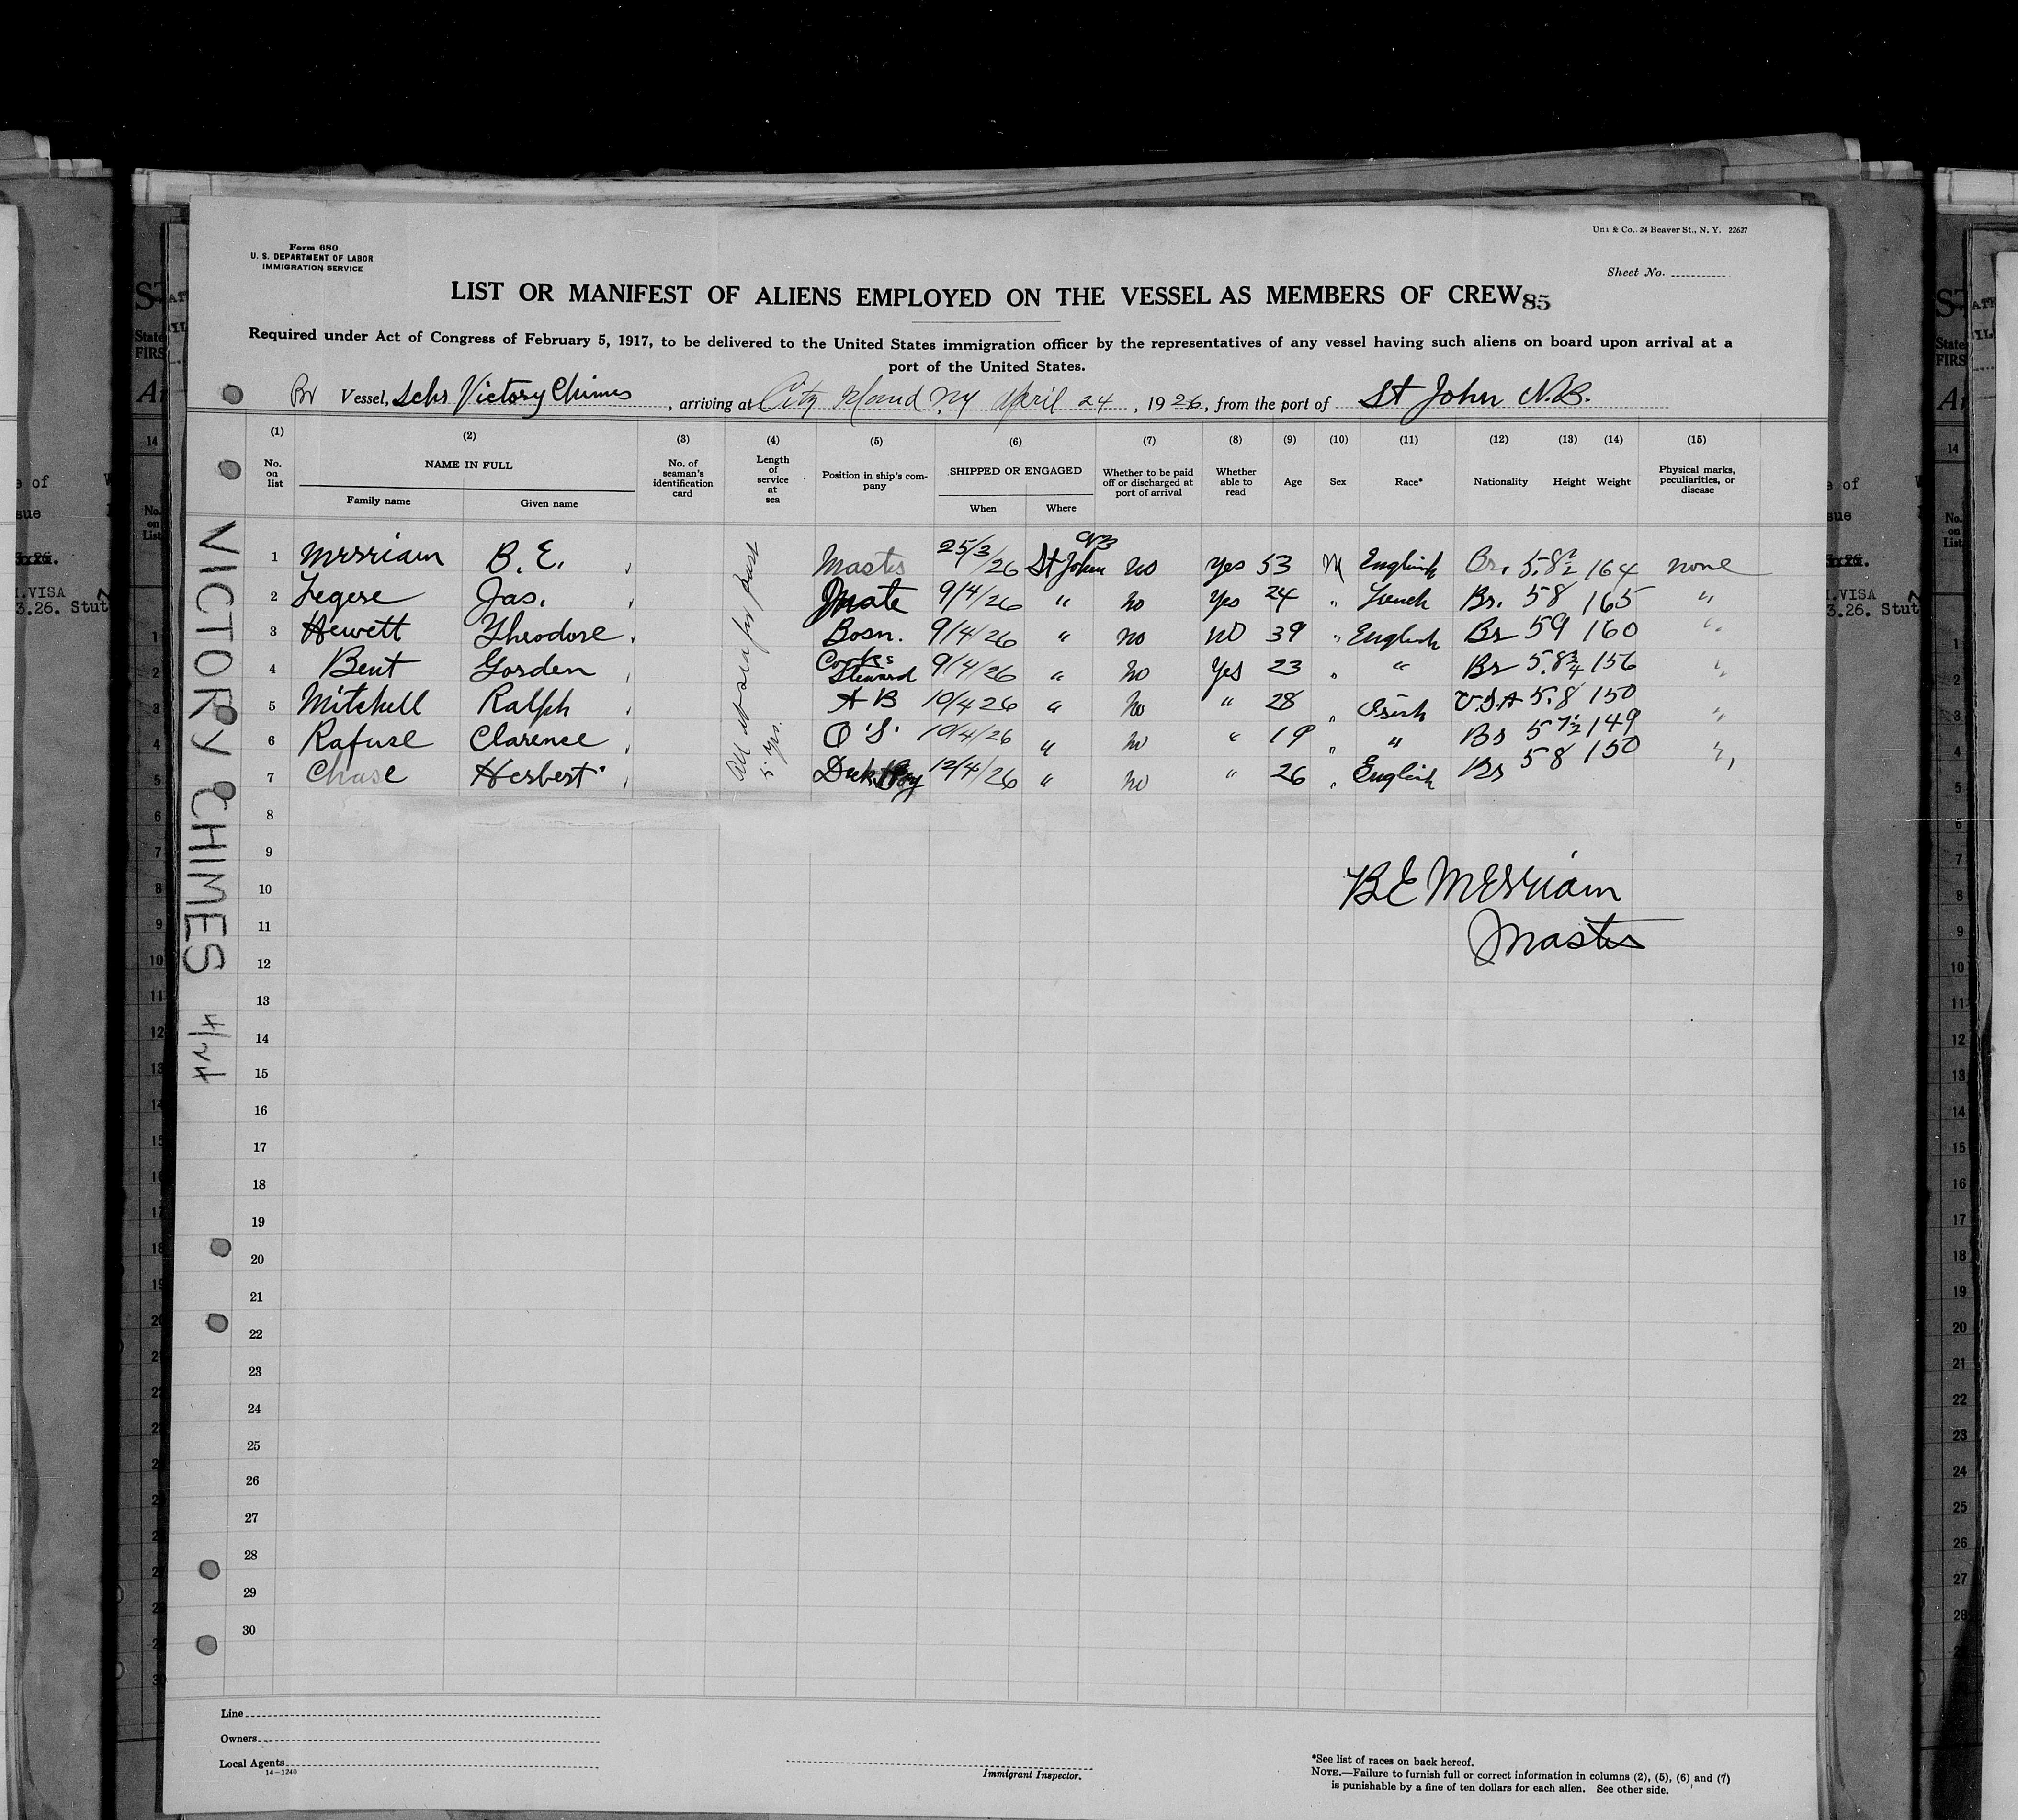 Form 680
U. S. DEPARTMENT OF LABOR
IMMIGRATION SERVICE
& Co., 24 Beaver St., N. Y. 22627
Sheet No.
LIST OR MANIFEST OF ALIENS EMPLOYED ON THE VESSEL AS MEMBERS OF CREW 85
Required under Act of Congress of February 5, 1917, to be delivered to the United States immigration officer by the representatives of any vessel having such aliens on board upon arrival at a
port of the United States.
Br Vessel, Schr Victory Chimes, arriving at City Island NY April 24, 1926, from the port of St John N.B.
(1) (2) (3) (4) (5) (6) (7) (8) (9) (10) (11) (12) (13) (14) (15)
No. on list NAME IN FULL Family name Given name No. of seaman's identification card Length of service at sea Position in ship's company SHIPPED OR ENGAGED When Where Whether to be paid off or discharged at port of arrival Whether able to read Age Sex Race* Nationality Height Weight Physical marks, peculiarities, or disease
All at sea for past 5 yrs.
1 Merriam B. E. Master 25/3/26 St John NB no Yes 53 M English Br. 5.8½ 164 none
2 Legere Jas. Mate 9/4/26 " no Yes 24 " French Br. 58 165 "
3 Hewett Theodore Bosn. 9/4/26 " no no 39 " English Br 59 160 "
4 Bent Gorden Cook & Steward 9/4/26 " no Yes 23 " " Br 5.8¾ 156 "
5 Mitchell Ralph A B 10/4 26 " no " 28 " Irish U.S.A 5.8 150 "
6 Rafuse Clarence O S. 10/4/26 " no " 19 " " Br 5 7½ 149
7 Chase Herbert Deck Boy 12/4/26 " no " 26 " English Br 58 150 "
8
9
10
11
12
13
14
15
16
17
18
19
20
21
22
23
24
25
26
27
28
29
30
B E Merriam
Master
VICTORY CHIMES 4/24
Line
Owners
Local Agents
14-1240
Immigrant Inspector.
*See list of races on back hereof.
NOTE.—Failure to furnish full or correct information in columns (2), (5), (6) and (7)
is punishable by a fine of ten dollars for each alien. See other side.